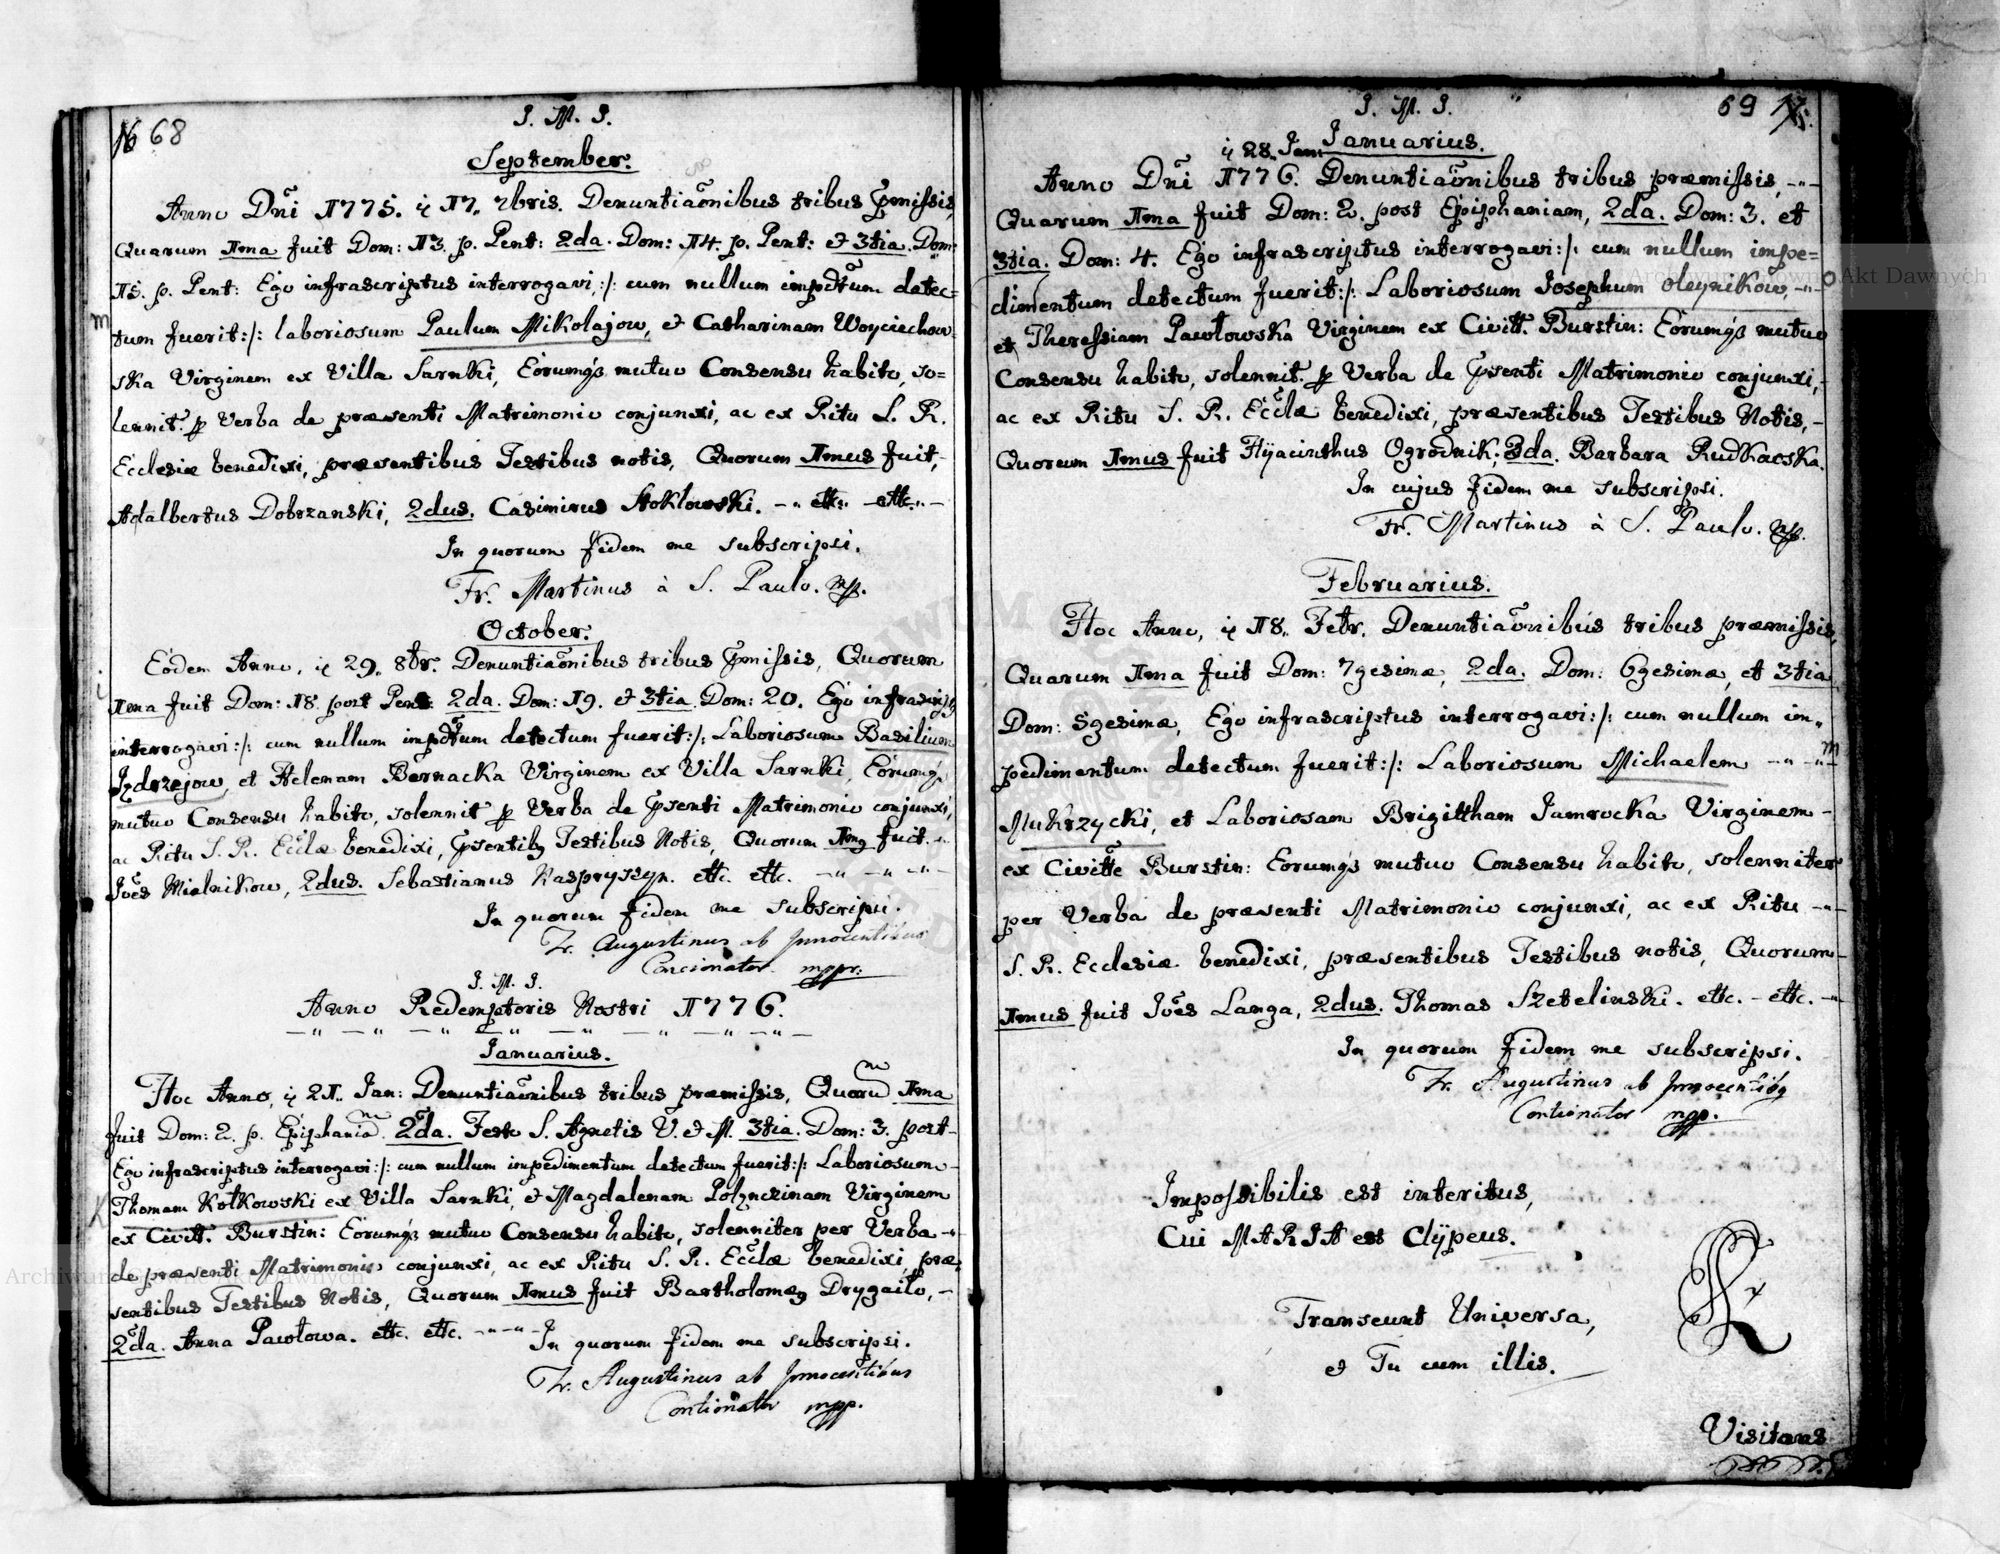 16 68
J. M. J.
September.
Anno Dñi 1775. ij 17. 7bris. Denuntiaõnibus tribus pmissis,
Quarum 1ma fuit Dom: 13. p. Pent: 2da. Dom: 14. p. Pent: et 3tia. Dom:
15. p. Pent: Ego infrascriptus interrogavi :/: cum nullum impdtum detec=
m
tum fuerit :/: laboriosum Paulum Mikolajow, et Catharinam Woyciechow-
ska Virginem ex Villa Sarnki, Eorumqs mutuo Consensu habito, so=
lennit. p Verba de præsenti Matrimonio conjunxi, ac ex Ritu S. R.
Ecclesiæ benedixi, præsentibus Testibus notis, Quorum 1mus fuit,
Adalbertus Dobrzanski, 2dus. Casimirus Stoklowski. - " ettc. - ettc. " -
In quorum fidem me subscripsi.
Fr. Martinus à S. Paulo. mp.
October.
Eodem Anno, ij 29. 8br. Denuntiaõnibus tribus pmissis, Quorum
i
1ma fuit Dom: 18. post Pent: 2da. Dom: 19. et 3tia. Dom: 20. Ego infrascripts
interrogavi :/: cum nullum impdtum detectum fuerit :/: Laboriosum Basilium
Jędrzejow, et Helenam Bernacka Virginem ex Villa Sarnki, Eorumqs
mutuo Consensu habito, solennit p Verba de psenti Matrimonio conjunxi,
ac Ritu S. R. Ecclæ benedixi, psentibq Testibus Notis, Quorum 1mq fuit - "
Joẽs Mielnikow, 2dus. Sebastianus Kaspryszyn. ettc. ettc. - " - " - " -
In quorum fidem me subscripsi.
Fr. Augustinus ab Innocentibus
Concionator mppr.
J. M. J.
Anno Redemptoris Nostri 1776.
- " - " - " - " - " - " - " - " -
Januarius.
Hoc Anno, ij 21. Jan: Denuntiaõnibus tribus præmissis, Quoru m 1ma
fuit Dom: 2. p. Epiphania m 2da. Festo S. Agnetis V. et M. 3tia. Dom: 3. post -
Ego infrascriptus interrogavi :/: cum nullum impedimentum detectum fuerit :/: Laboriosum -
K
Thomam Kotkowski ex Villa Sarnki, et Magdalenam Polynczinam Virginem
ex Civitt. Burstin: Eorumqs mutuo Consensu habito, solenniter per Verba - "
de præsenti Matrimonio conjunxi, ac ex Ritu S. R. Ecclæ benedixi, præ-
sentibus Testibus Notis, Quorum 1mus fuit Bartholomæq Drygailo, -
2da. Anna Pawłowa. ettc. ettc. - " - " -
In quorum fidem me subscripsi.
Fr. Augustinus ab Innocentibus
Contionator mpp.
69 17.
J. M. J.
Januarius.
ij 28. Jan:
Anno Dñi 1776. Denuntiaõnibus tribus præmissis, - " -
Quarum 1ma fuit Dom: 2. post Epiphaniam, 2da. Dom: 3. et
3tia. Dom: 4. Ego infrascriptus interrogavi :/: cum nullum impe=
dimentum detectum fuerit :/: Laboriosum Josephum Oleynikow, - " - O
et Theressiam Pawłowska Virginem ex Civitt. Burstin: Eorumqs mutuo
Consensu habito, solennit. p Verba de psenti Matrimonio conjunxi, -
ac ex Ritu S. R. Ecclæ benedixi, præsentibus Testibus Notis, -
Quorum 1mus fuit Hyacinthus Ogrodnik; 2da. Barbara Rudkaoska.
In cujus fidem me subscripsi.
Fr. Martinus à S. Paulo. mp.
Februarius.
Hoc Anno, ij 18. Febr. Denuntiaõnibus tribus præmissis,
Quarum 1ma fuit Dom: 7gesimæ, 2da. Dom: 6gesimæ, et 3tia
Dom: 5gesimæ, Ego infrascriptus interrogavi :/: cum nullum im-
pedimentum detectum fuerit :/: Laboriosum Michaelem - " - " - m
Mukrzycki, et Laboriosam Brigittham Jamrocka Virginem -
ex Civitte Burstin: Eorumqs mutuo Consensu habito, solenniter
per Verba de præsenti Matrimonio conjunxi, ac ex Ritu - " -
S. R. Ecclesiæ benedixi, præsentibus Testibus notis, Quorum -
1mus fuit Joẽs Langa, 2dus. Thomas Szetelinski. ettc. - ettc. - " -
In quorum fidem me subscripsi.
Fr. Augustinus ab Innocentibq
Contionator mpp.
Impossibilis est interitus,
Cui MARIA est Clypeus.
Transeunt Universa,
et Tu cum illis.
Visitans
Archiwum Główne Akt Dawnych
Archiwum Główne Akt Dawnych